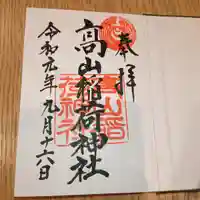 奉拝
高山稲荷神社
令和元年九月十六日